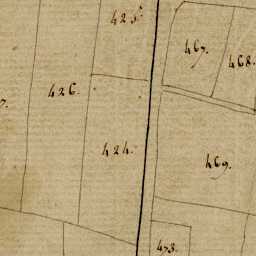 425.
467.
468.
7.
426.
424.
469.
473.